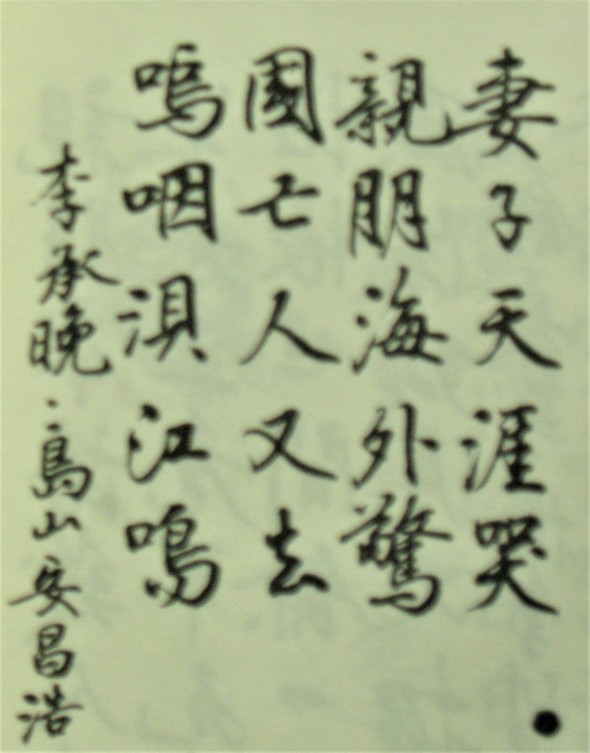 妻子天涯哭
親朋海外驚
國亡人又去
嗚咽浿江鳴
李承晚·島山安昌浩